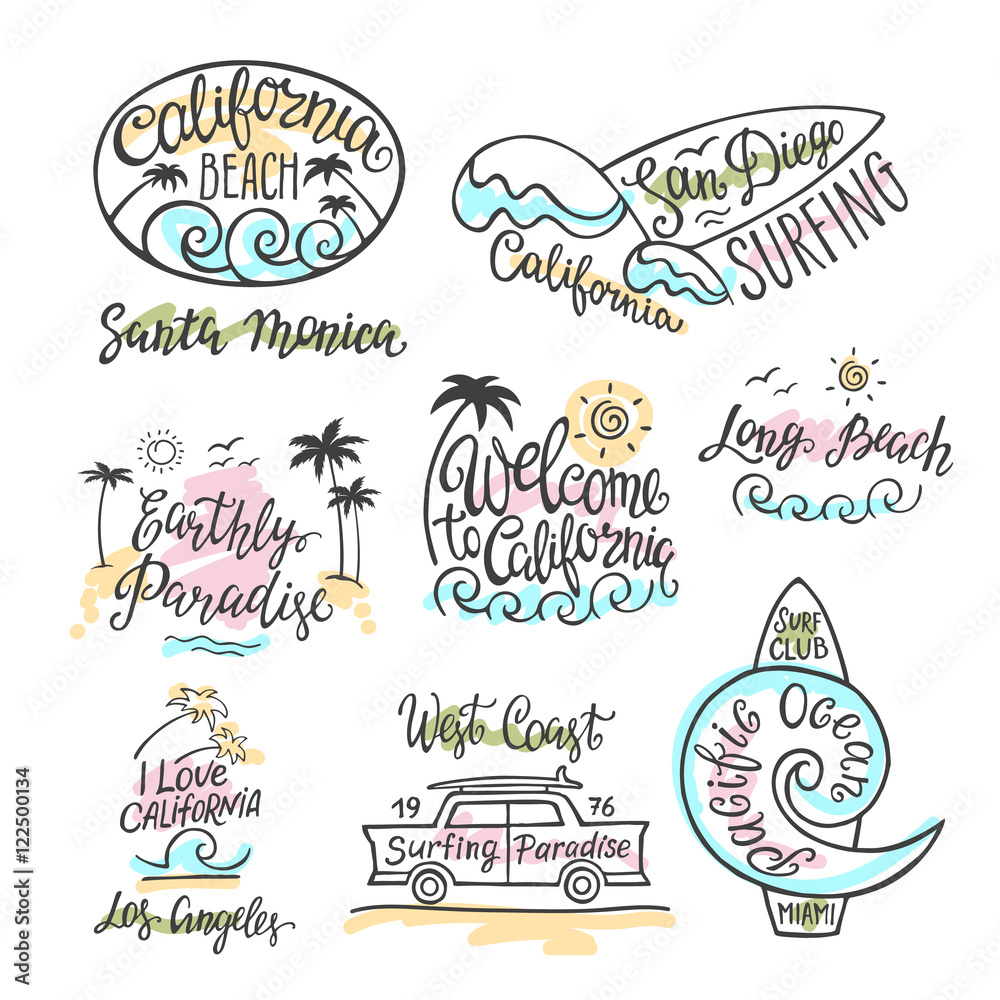 California
BEACH
Santa Monica
San Diego
SURFING
California
Earthly
Paradise
Welcome
to California
Long Beach
I LOVE
CALIFORNIA
Los Angeles
West Coast
19 76
Surfing Paradise
SURF
CLUB
Pacific Ocean
MIAMI
Adobe Stock | #122500134